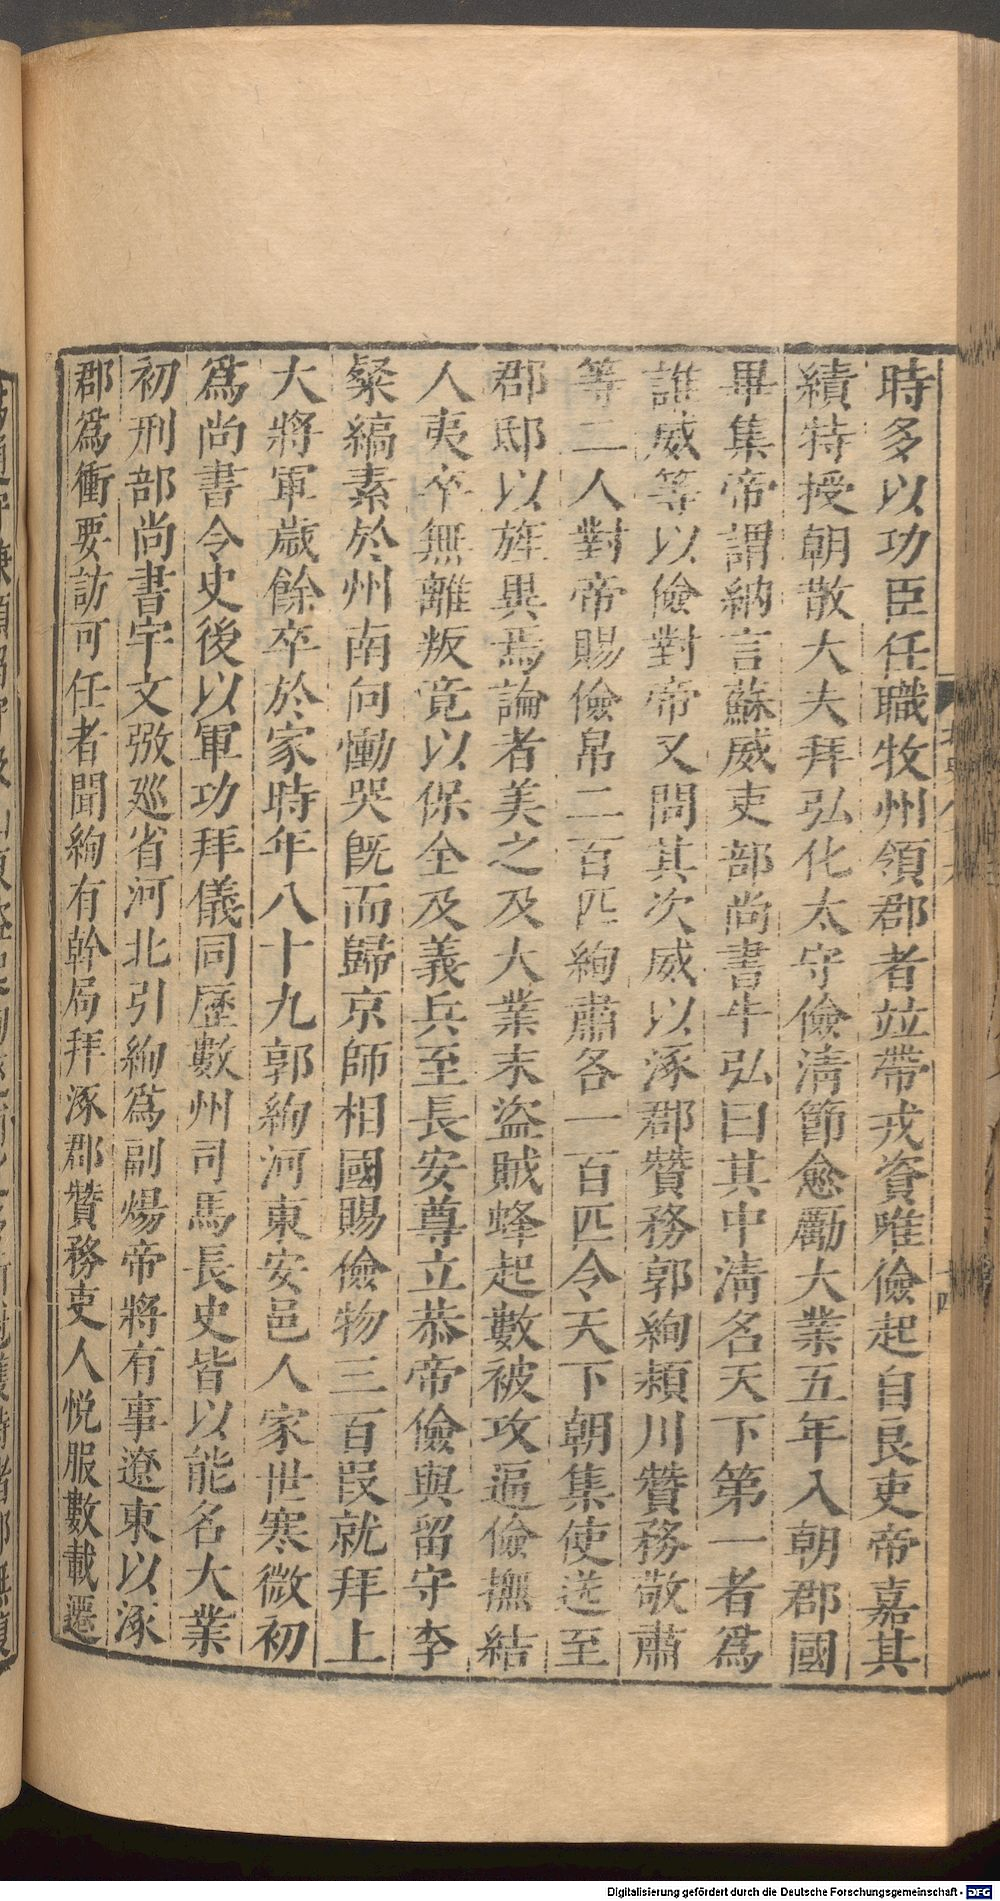 時多以功臣任職牧州領郡者竝帶戎資唯儉起自良吏帝嘉其
績特授朝散大夫拜弘化太守儉清節愈勵大業五年入朝郡國
畢集帝謂納言蘇威吏部尚書牛弘曰其中清名天下第一者爲
誰威等以儉對帝又問其次威以涿郡贊務郭絢潁川贊務敬肅
等二人對帝賜儉帛二百匹絢肅各一百匹令天下朝集使送至
郡邸以旌異焉論者美之及大業末盜賊蜂起數被攻逼儉撫結
人夷卒無離叛竟以保全及義兵至長安尊立恭帝儉與留守李
粲縞素於州南向慟哭旣而歸京師相國賜儉物三百段就拜上
大將軍歲餘卒於家時年八十九郭絢河東安邑人家世寒微初
爲尚書令史後以軍功拜儀同歷數州司馬長史皆以能名大業
初刑部尚書宇文㢸巡省河北引絢爲副煬帝將有事遼東以涿
郡爲衝要訪可任者聞絢有幹局拜涿郡贊務吏人悅服數載遷
Digitalisierung gefördert durch die Deutsche Forschungsgemeinschaft - DFG